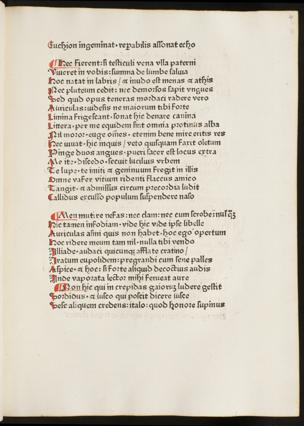 Euchion ingeminat · reparabilis assonat echo
Hec fierent: si testiculi vena vlla paterni
Viueret in vobis: summa de lumbe saliua
Hoc natat in labris / & in udo est menas & athis
Nec pluteum cedit: nec demorsos sapit vngues
Sed quid opus teneras mordaci radere vero
Auriculas: uidesis ne maiorum tibi forte
Limina frigescant · sonat hic de nare canina
Littera · per me equidem sint omnia protinus alba
Nil moror · euge omnes · etenim bene mire eritis res
Hec iuuat · hic inquis / veto quisquam faxit oletum
Pinge duos angues · pueri sacer est locus extra
Me it: discedo · secuit lucilius vrbem
Te lupe · te muti & genuinum fregit in illis
Omne vafer vitium ridenti flaccus amico
Tangit · & admissus circum precordia ludit
Callidus excusso populum suspendere naso
Men mutire nefas: nec clam: nec cum scrobe: nusq
Hic tamen infodiam · vidi hic vidi ipse libelle
Auriculas asini quis non habet · hoc ego opertum
Hoc ridere meum tam nil · nulla tibi vendo
Iliade · audaci quicunq afflate cratino /
Iratum eupolidem: pregrandi cum sene palles
Aspice · & hoc: si forte aliquid decoctius audis
Inde vaporata lector mihi ferueat aure
Non hic qui in crepidas gaiorum ludere gestit
Sordidus · & lusco qui poscit dicere lusce
Sese aliquem credens: italo: quod honore supinus